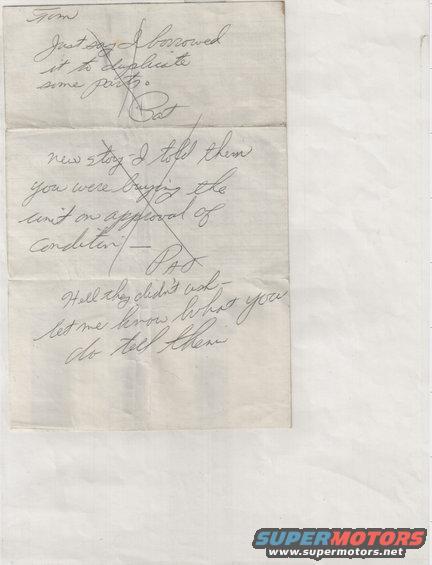 Tom
Just say I borrowed
it to duplicate
some parts.
Pat
new story - I told them
you were buying the
unit on approval of
Condition -
PAT
Hell they didn't ask -
let me know what you
do tell them
SUPERMOTORS
www.supermotors.net